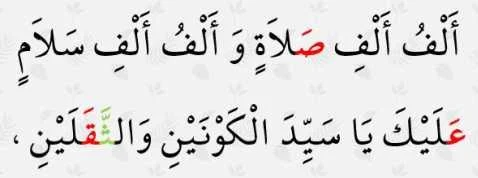 أَلْفُ أَلْفِ صَلاَةٍ وَ أَلْفُ أَلْفِ سَلاَمٍ
عَلَيْكَ يَا سَيِّدَ الْكَوْنَيْنِ وَالثَّقَلَيْنِ ،